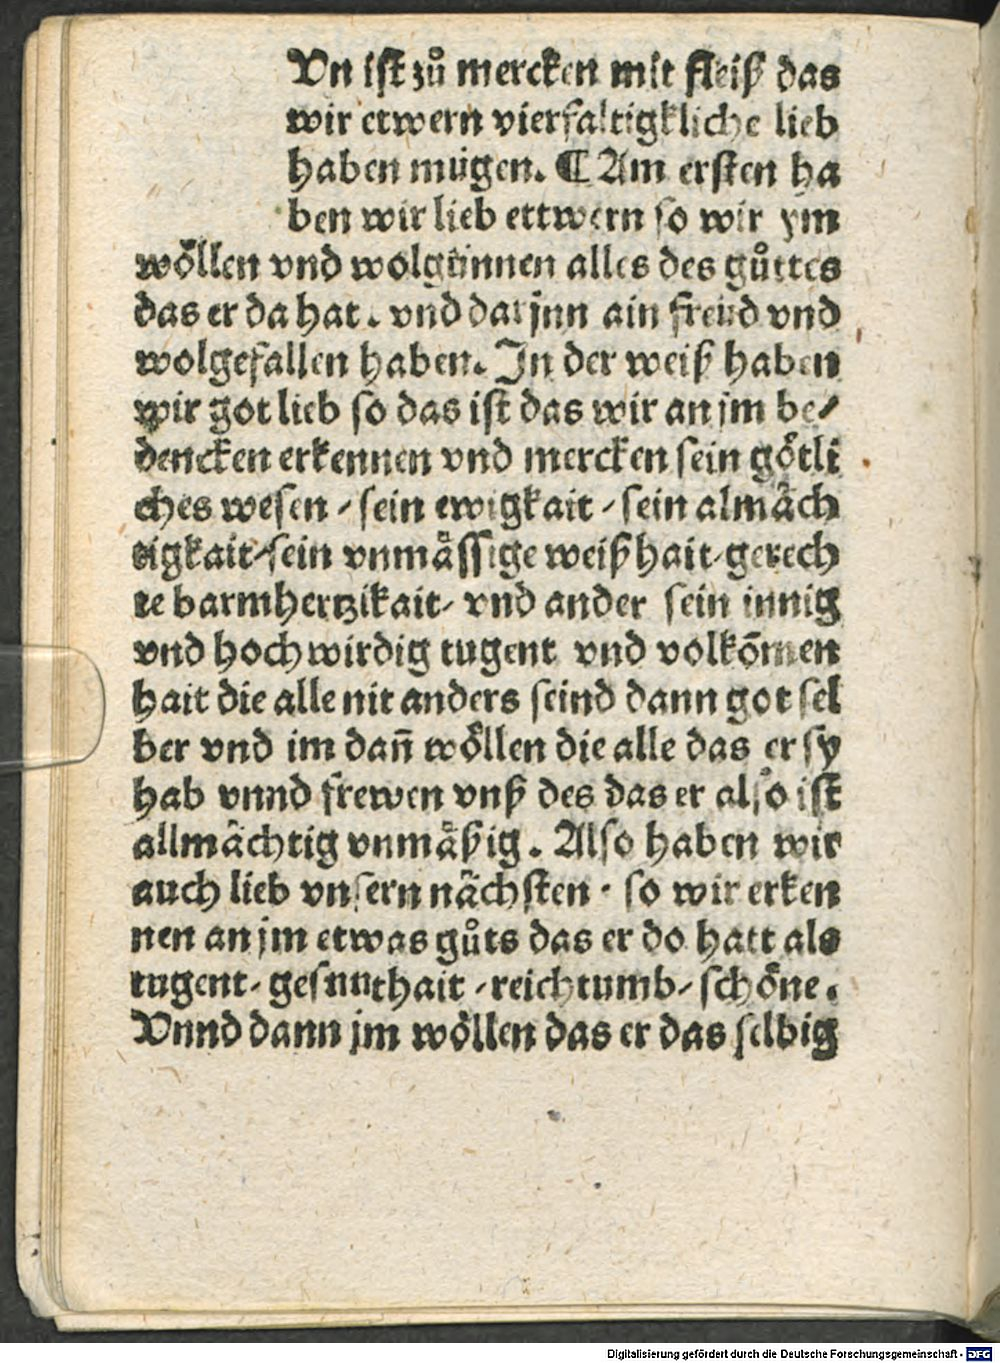 Vn ist zů mercken mit fleiß das
wir etwern vierfaltigkliche lieb
haben mügen. ¶ Am ersten ha
ben wir lieb ettwern so wir ym
wöllen vnd wolgünnen alles des gůttes
das er da hat. vnd darjnn ain freüd vnd
wolgefallen haben. In der weiß haben
wir got lieb so das ist das wir an jm be/
dencken erkennen vnd mercken sein götli
ches wesen / sein ewigkait / sein almäch
tigkait / sein vnmässige weißhait / gerech
te barmhertzikait / vnd ander sein innig
vnd hochwirdig tugent vnd volkōmen
hait die alle nit anders seind dann got sel
ber vnd im dan̄ wöllen die alle das er sy
hab vnnd frewen vnß des das er also ist
allmächtig vnmäßig. Also haben wir
auch lieb vnsern nächsten · so wir erken
nen an jm etwas gůts das er do hatt als
tugent / gesunthait / reichtumb / schöne.
Vnnd dann jm wöllen das er das selbig
Digitalisierung gefördert durch die Deutsche Forschungsgemeinschaft - DFG